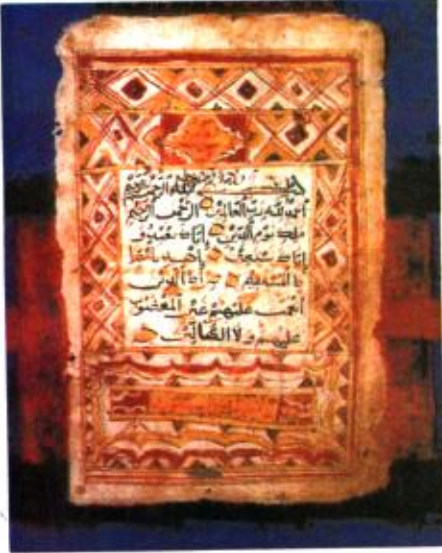 بسم الله الرحمن الرحيم
الحمد لله رب العالمين الرحمن الرحيم
ملك يوم الدين إياك نعبد و
إياك نستعين إهدنا
المستقيم صراط الذين
أنعمت عليهم غير المغضوب
عليهم ولا الضالين